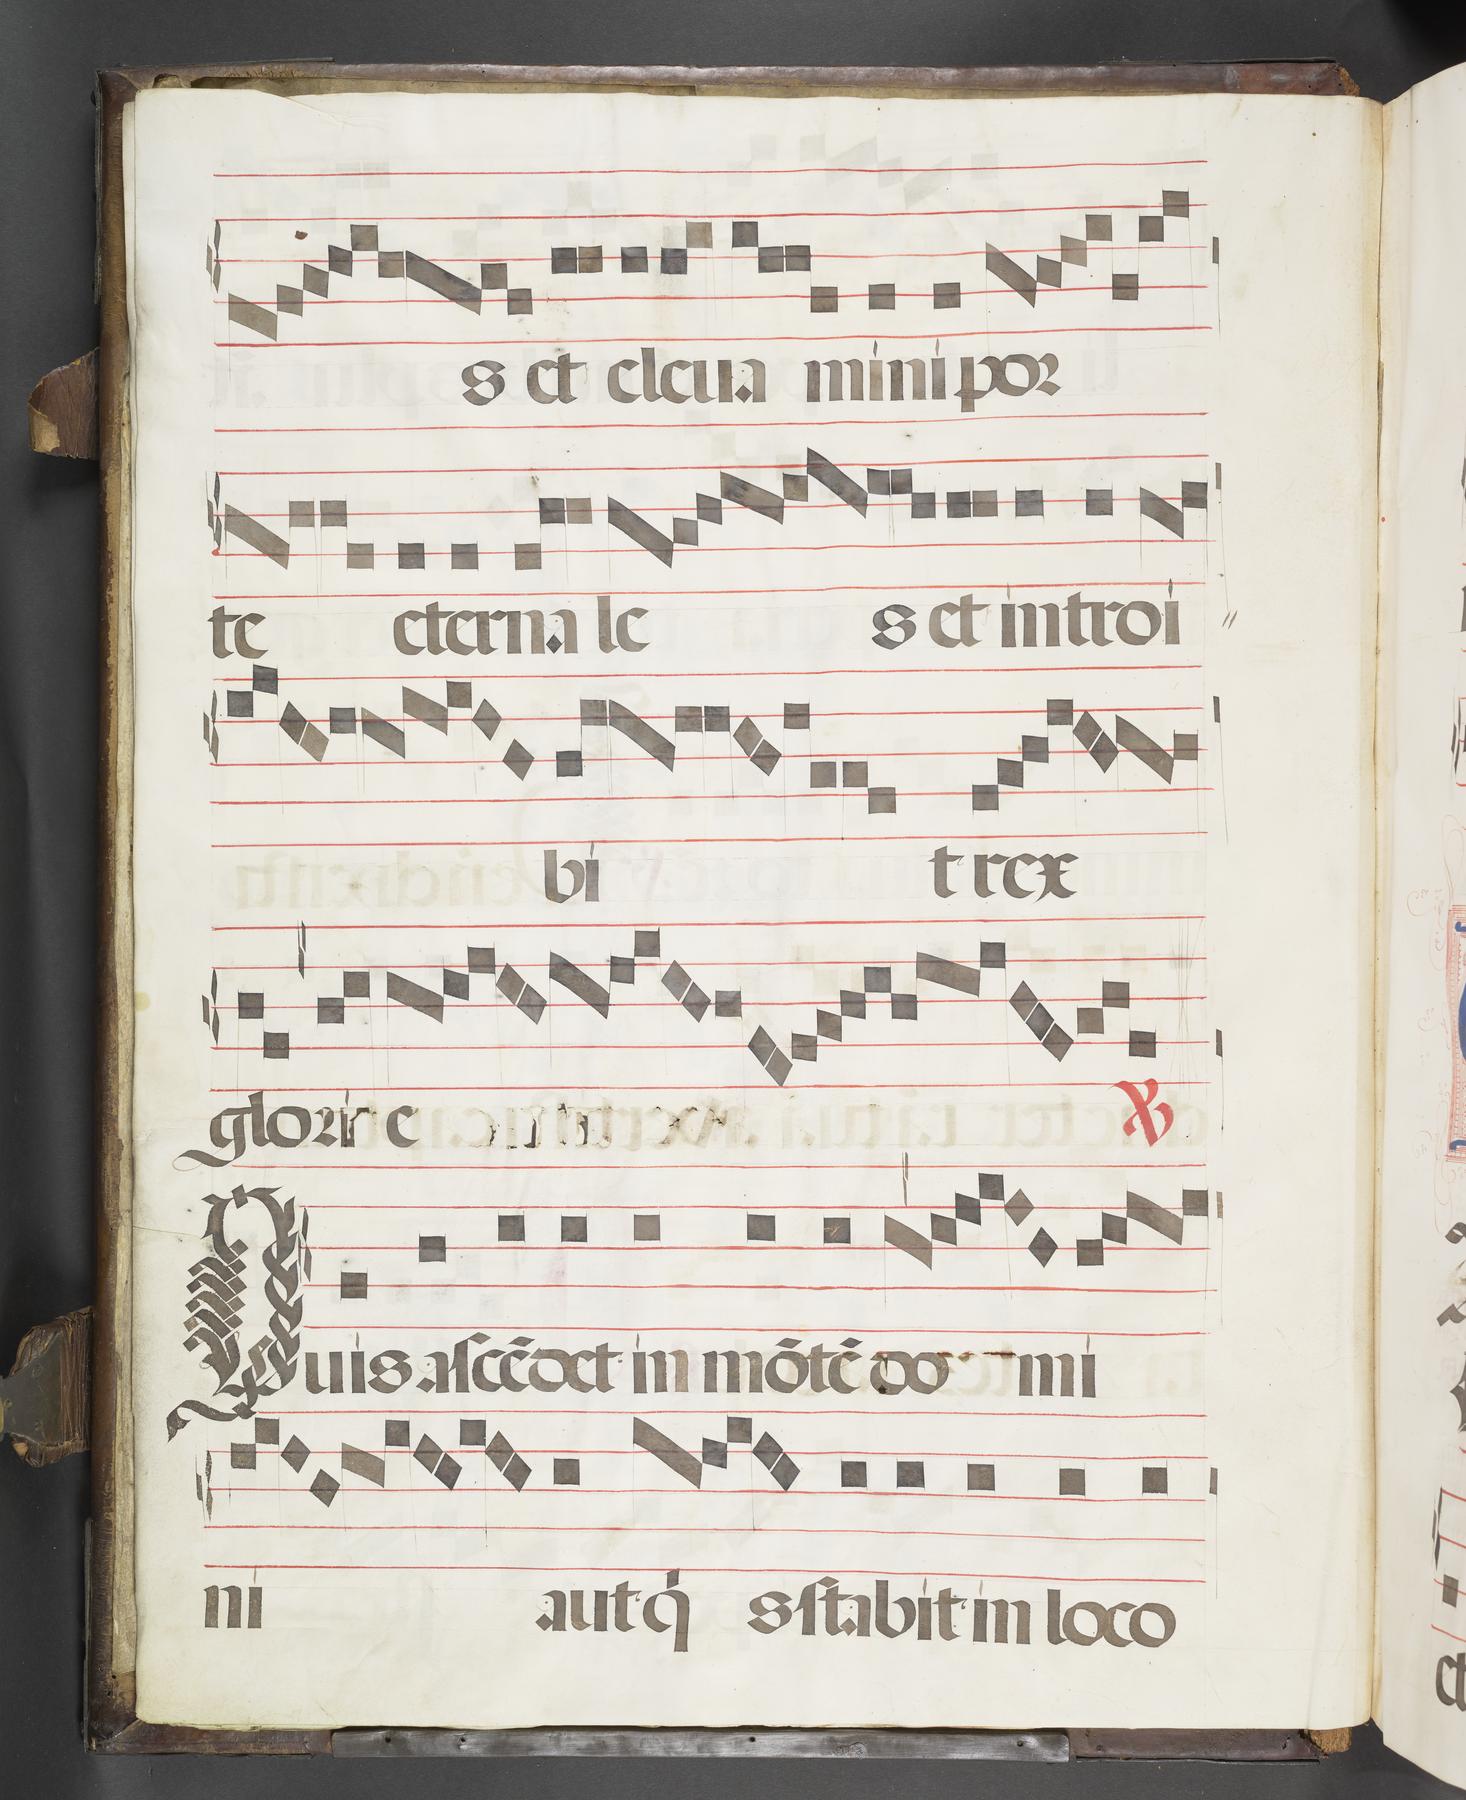 s et eleua mini por
te eterna le s et introi
bi t rex
glorie
℣
Quis ascēdet in mōtē do mi
ni aut q̇ s stabit in loco